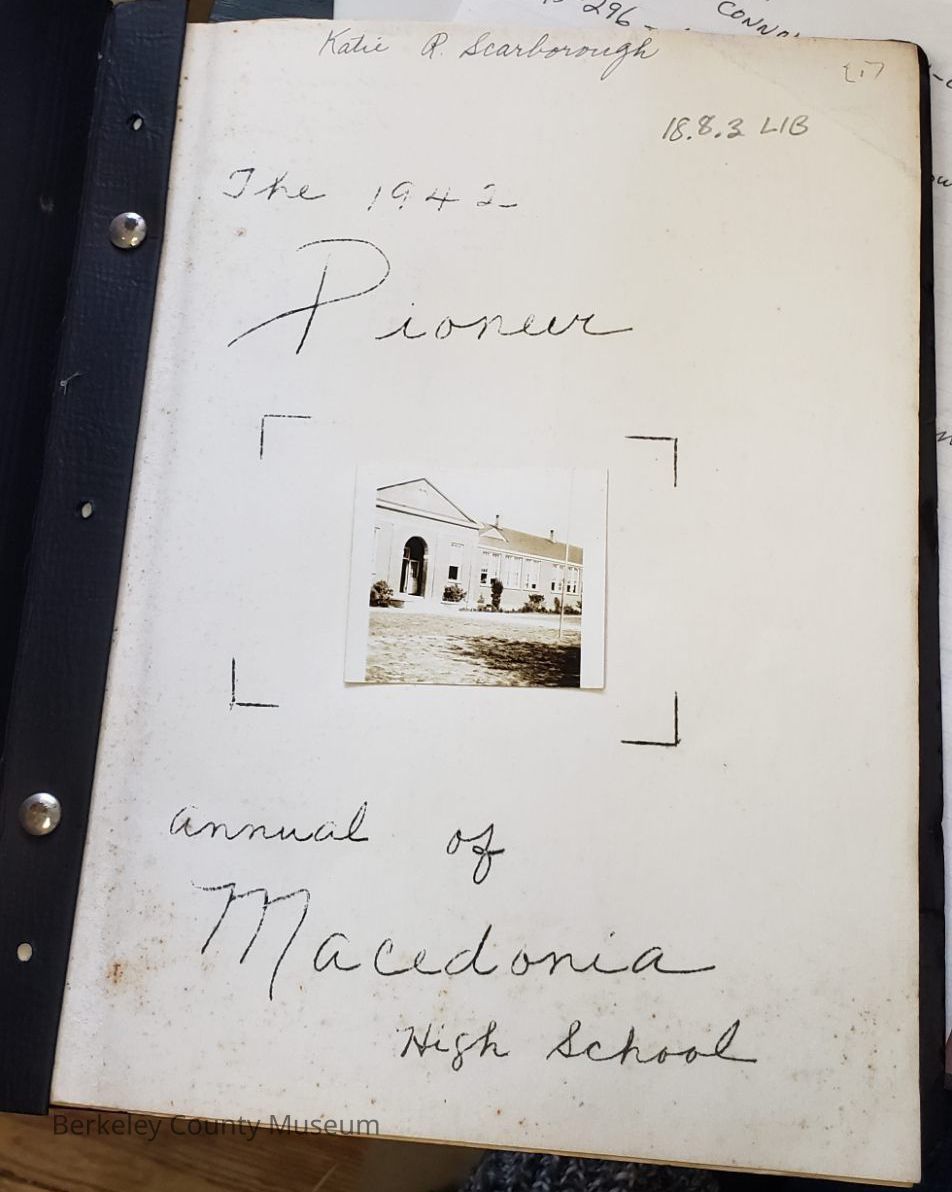 296-
Katie R. Scarborough
18.8.3 LIB
The 1942
Pioneer
annual of
Macedonia
High School
Berkeley County Museum